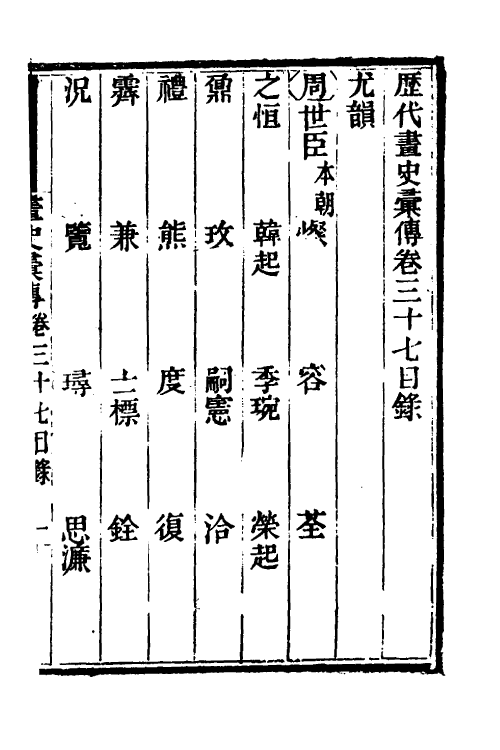 歷代畫史彙傳卷三十七目錄
尤韻
周世臣本朝 燦 容 荃
之恒 韓起 季琬 榮起
鼐 玫 嗣憲 洽
禮 熊 度 復
霽 兼 士標 銓
況 覽 璕 思濂
畫史彙傳卷三十七目錄 一